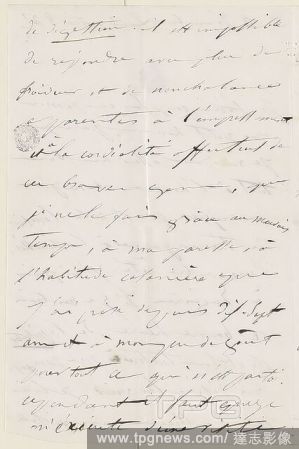 de digestion il est impossible
de répondre avec plus de
froideur et de nonchalance
apparentes à l'empressement
et à la cordialité affectueuse de
ces braves gens, que
je ne le fais grâce au mauvais
temps, à ma paresse, à
l'habitude casanière que
j'ai prise depuis dix-sept
ans et à mon peu de goût
pour tout ce qui est parti
cependant il faut que je
m'exécute d'une visite
TPG
www.tpgnews.com / 達志影像